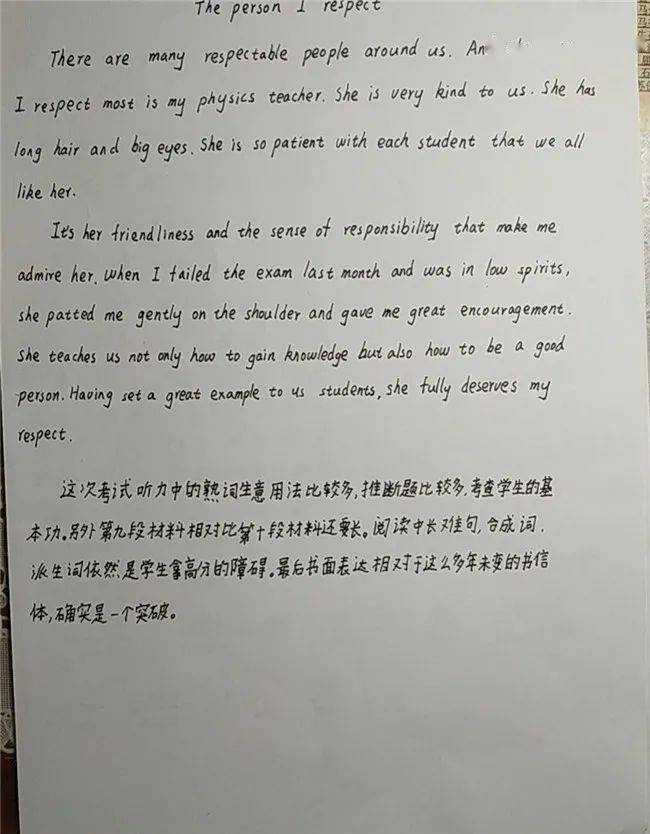 The person I respect
There are many respectable people around us. An
I respect most is my physics teacher. She is very kind to us. She has
long hair and big eyes. She is so patient with each student that we all
like her.
It's her friendliness and the sense of responsibility that make me
admire her. When I failed the exam last month and was in low spirits,
she patted me gently on the shoulder and gave me great encouragement.
She teaches us not only how to gain knowledge but also how to be a good
person. Having set a great example to us students, she fully deserves my
respect.
这次考试听力中的熟词生意用法比较多,推断题比较多,考查学生的基
本功。另外第九段材料相对比第十段材料还要长。阅读中长难句,合成词,
派生词依然是学生拿高分的障碍。最后书面表达相对于这么多年未变的书信
体,确实是一个突破。